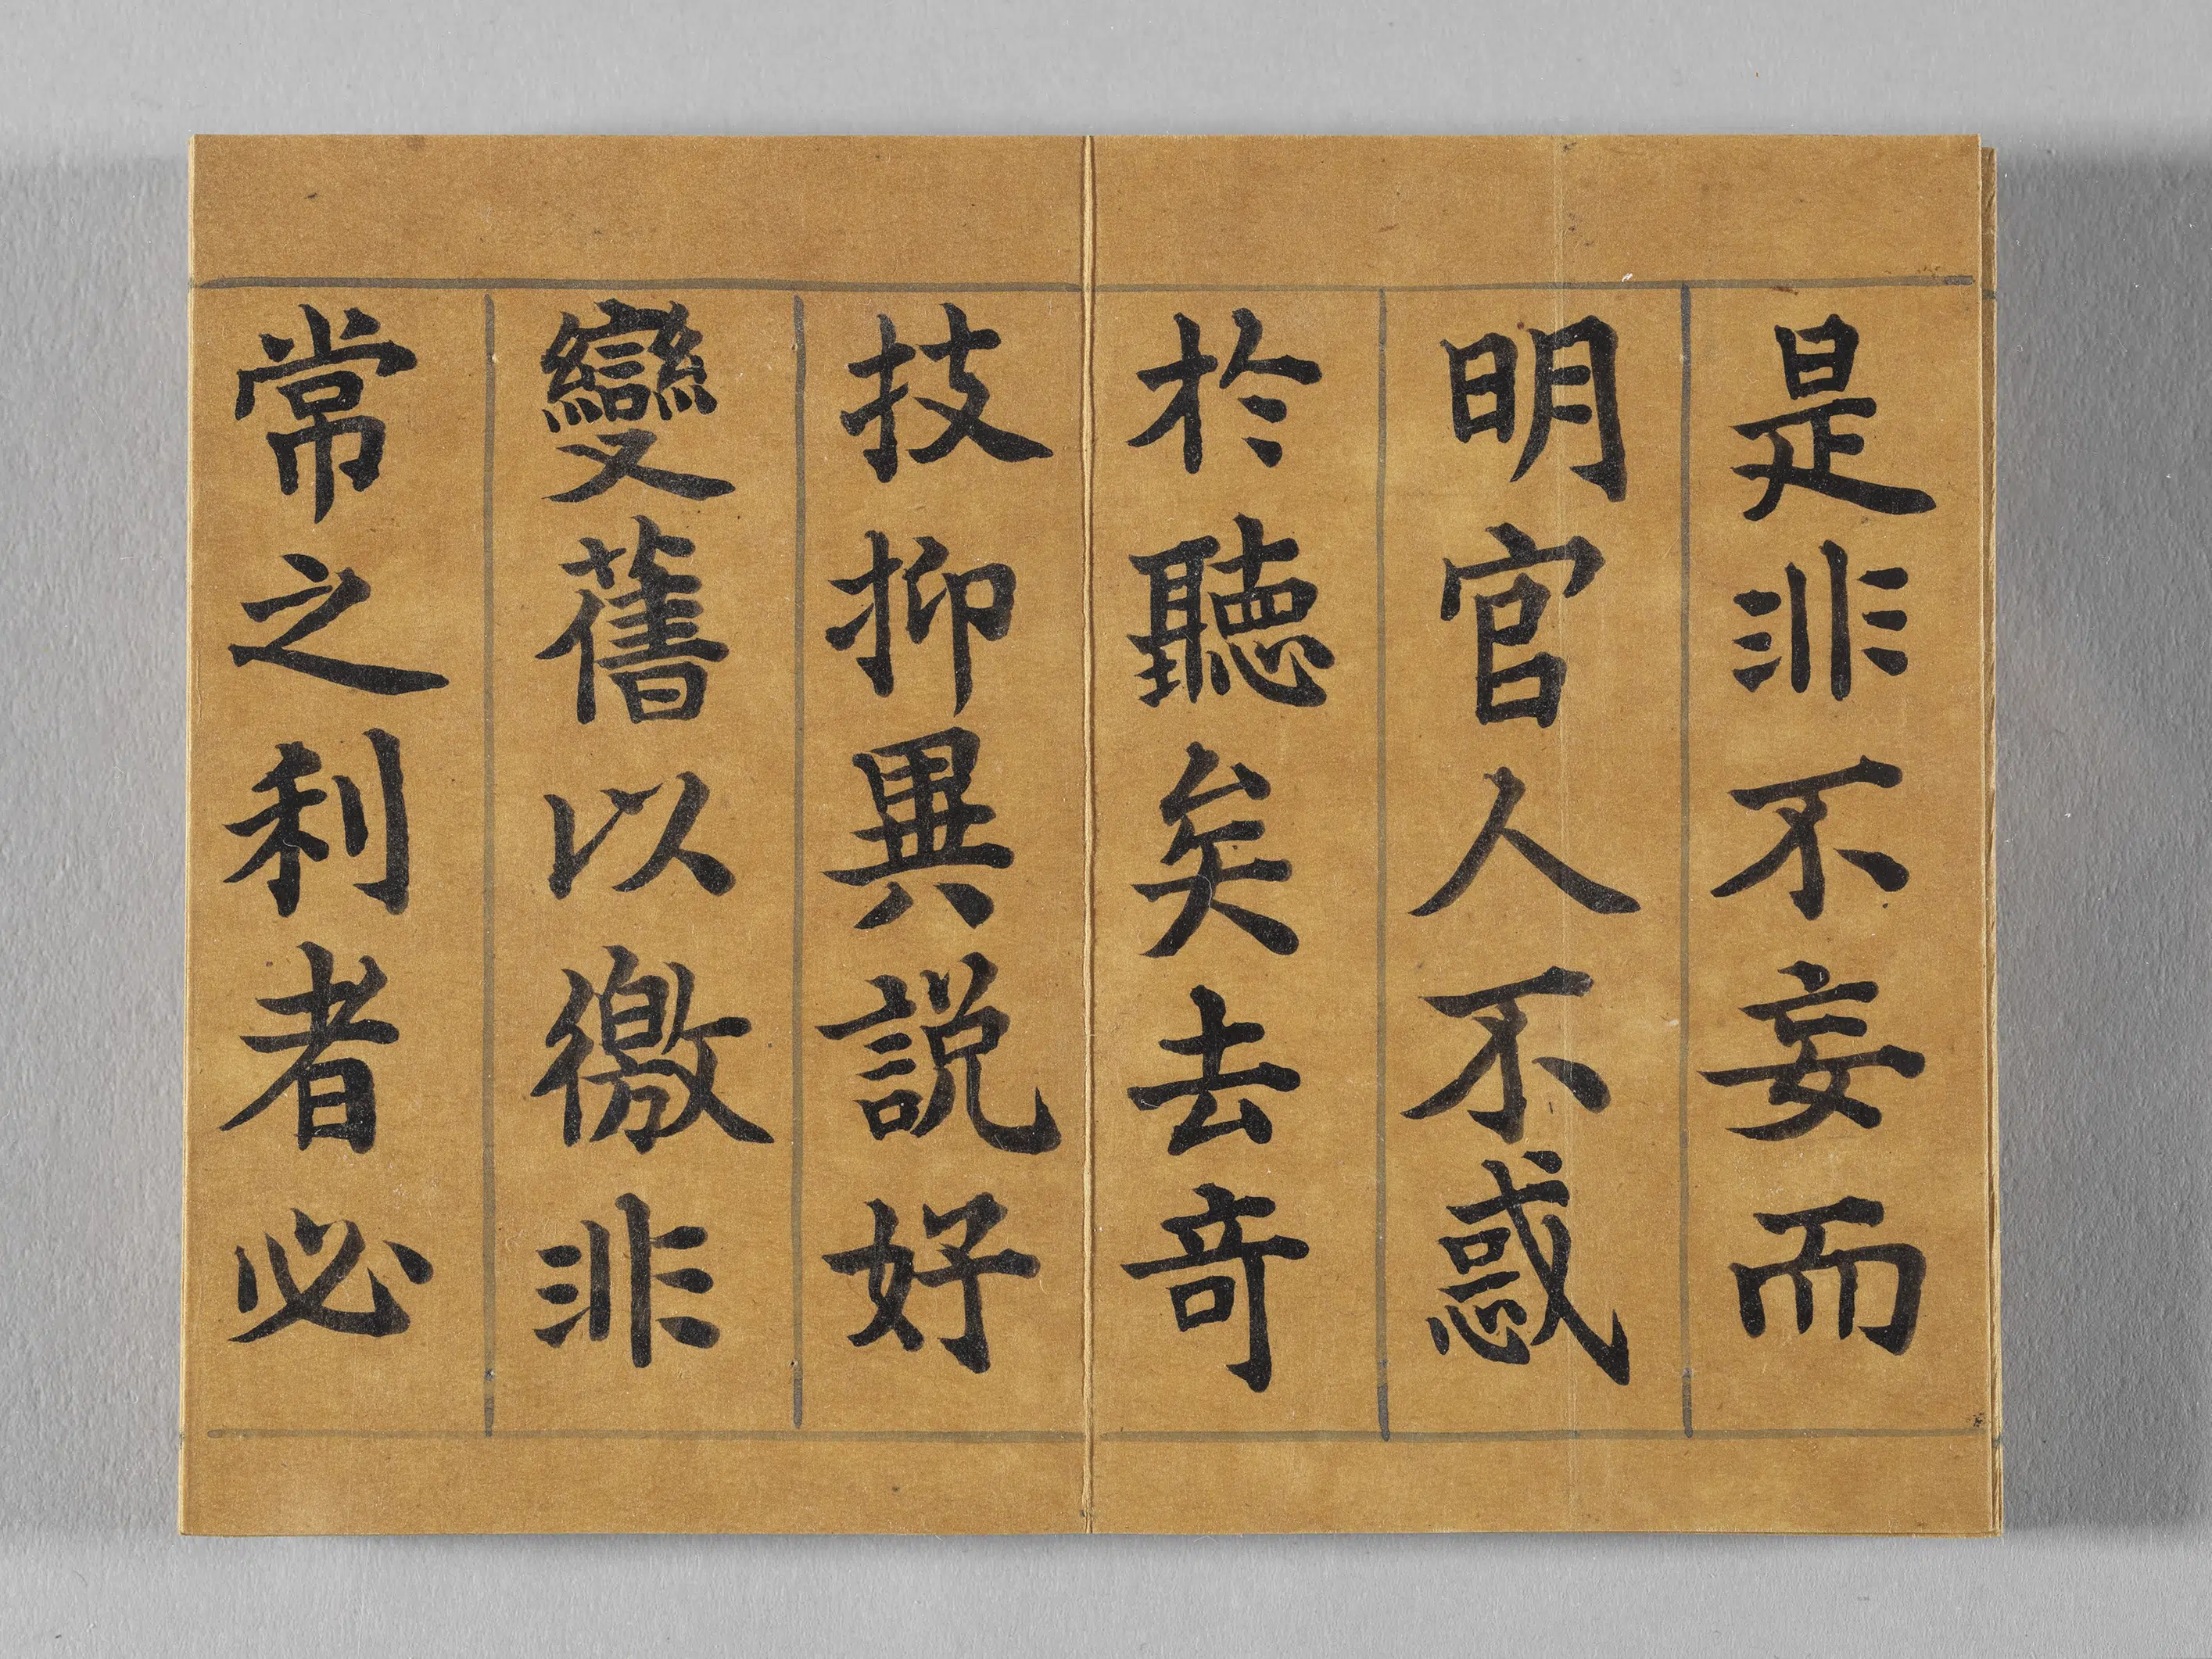 是非不妄而
明官人不惑
於聽矣去奇
技抑異説好
變舊以徼非
常之利者必